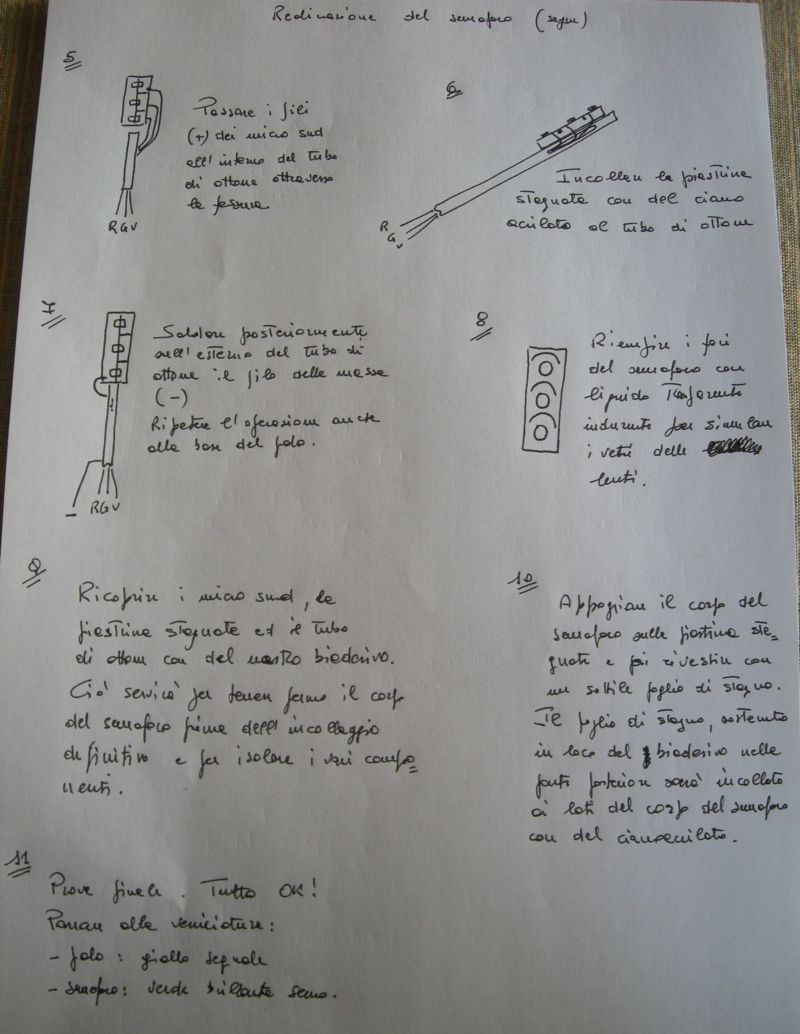 Realizzazione del semaforo (segue)
5
Passare i fili
(+) dei micro smd
all'interno del tubo
di ottone attraverso
la fessura
RGV
6
Incollare la piastrina
stagnata con del ciano
acrilato al tubo di ottone
R
G
V
7
Saldare posteriormente
nell'esterno del tubo di
ottone il filo della massa
(-)
Ripetere l'operazione anche
alla base del palo.
-
RGV
8
Riempire i fori
del semaforo con
liquido trasparente
indurente per simulare
i vetri delle
lenti.
9
Ricoprire i micro smd, la
piastrina stagnata ed il tubo
di ottone con del nastro biadesivo.
Ciò servirà per tenere fermo il corpo
del semaforo prima dell'incollaggio
definitivo e per isolare i vari compo=
nenti.
10
Appoggiare il corpo del
semaforo sulla piastrina sta=
gnata e poi rivestire con
un sottile foglio di stagno.
Il foglio di stagno, sostenuto
in loco dal biadesivo nella
parte posteriore sarà incollato
ai lati del corpo del semaforo
con del cianoacrilato.
11
Prova finale. Tutto OK!
Passare alla verniciatura:
- palo: giallo segnale
- semaforo: verde brillante scuro.